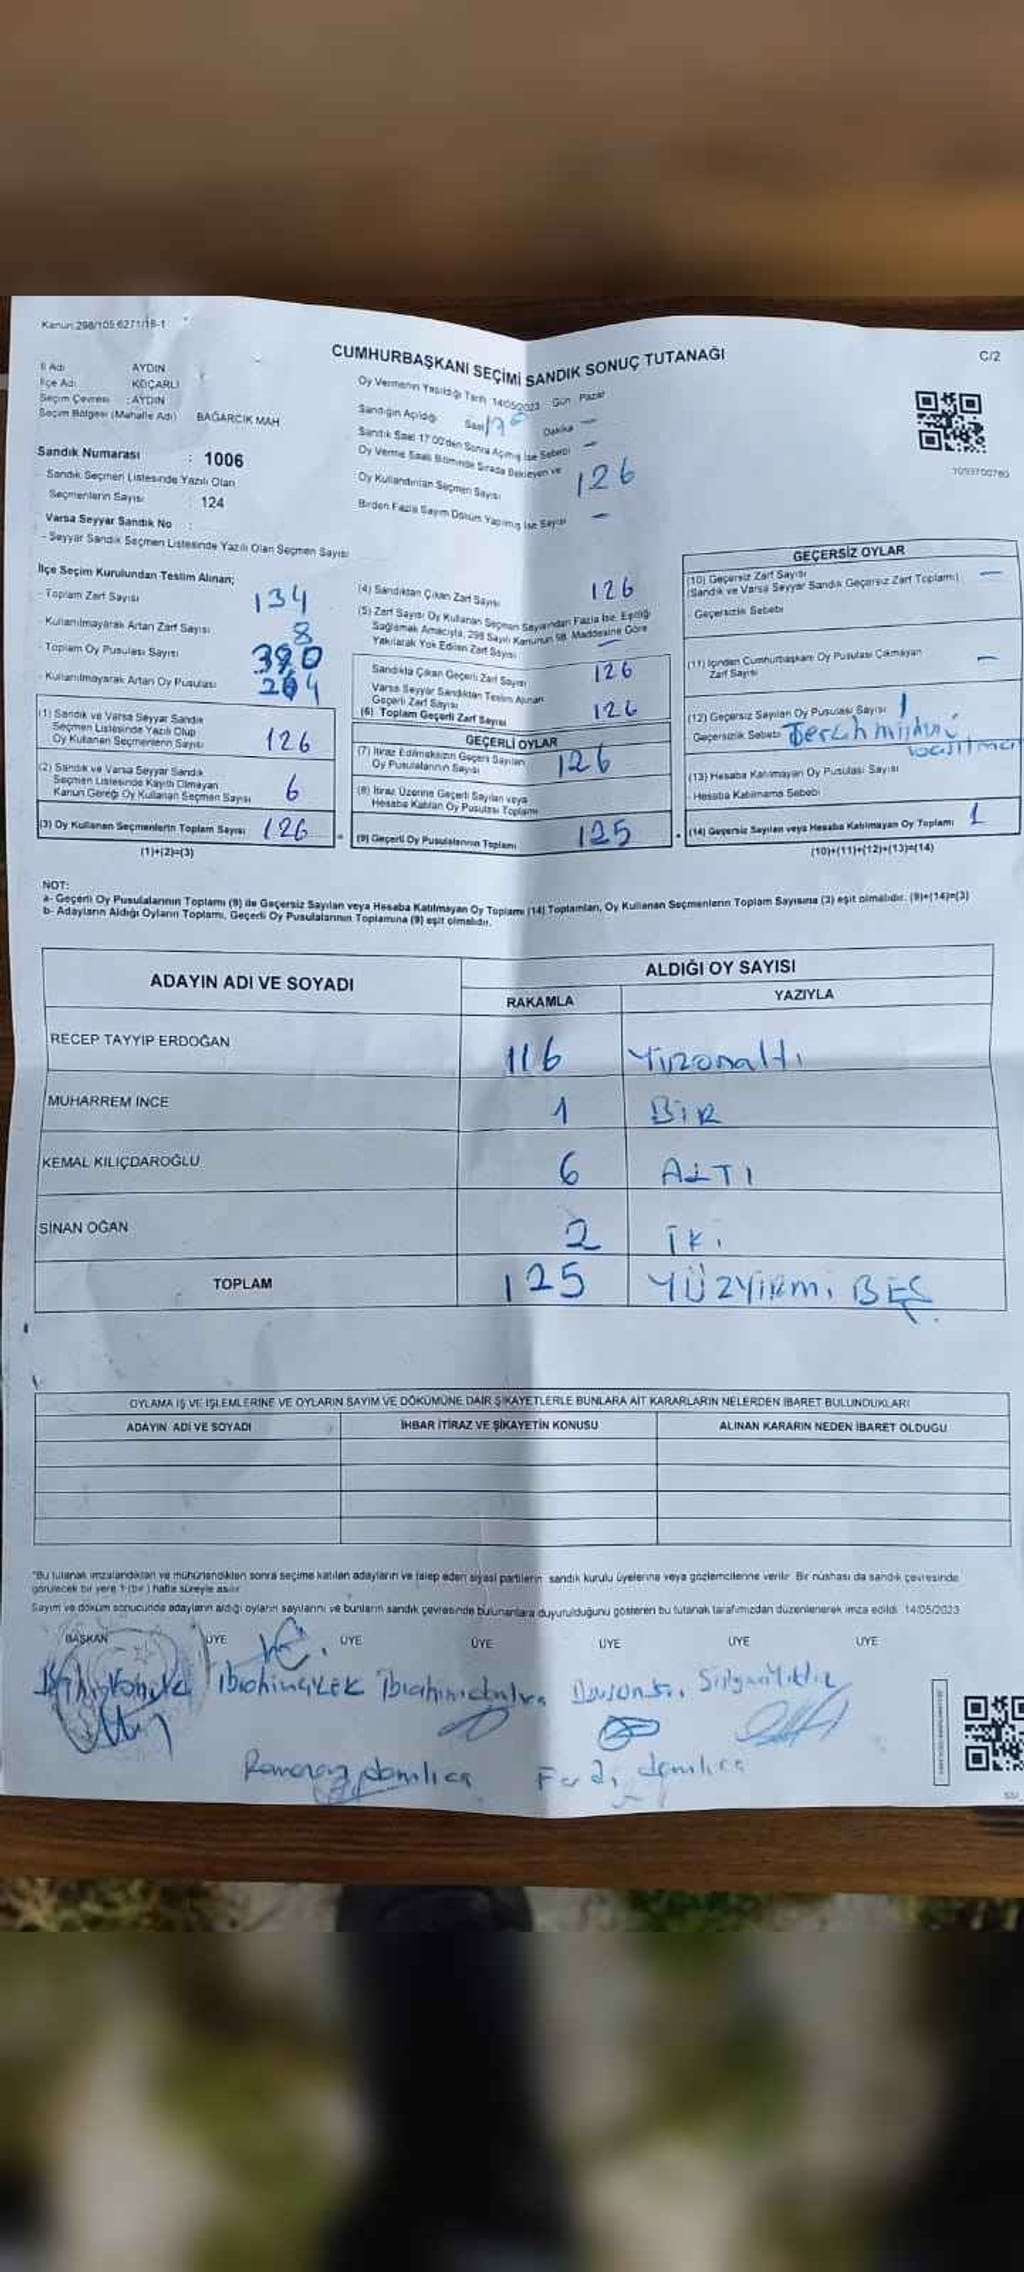 Kanun:298/105.6271/18-1
CUMHURBAŞKANI SEÇİMİ SANDIK SONUÇ TUTANAĞI
C/2
İl Adı AYDIN
İlçe Adı KOÇARLI
Seçim Çevresi : AYDIN
Seçim Bölgesi (Mahalle Adı) BAĞARCIK MAH
Oy Vermenin Yapıldığı Tarih 14/05/2023 Gün Pazar
Sandığın Açıldığı Saat 17 Dakika —
Sandık Saat 17:00'den Sonra Açılmış İse Sebebi —
Oy Verme Saati Bitiminde Sırada Bekleyen ve
Oy Kullandırılan Seçmen Sayısı 126
Birden Fazla Sayım Döküm Yapılmış İse Sayısı —
1093700780
Sandık Numarası : 1006
Sandık Seçmen Listesinde Yazılı Olan
Seçmenlerin Sayısı : 124
Varsa Seyyar Sandık No :
- Seyyar Sandık Seçmen Listesinde Yazılı Olan Seçmen Sayısı
İlçe Seçim Kurulundan Teslim Alınan;
- Toplam Zarf Sayısı 134
- Kullanılmayarak Artan Zarf Sayısı 8
- Toplam Oy Pusulası Sayısı
- Kullanılmayarak Artan Oy Pusulası
(1) Sandık ve Varsa Seyyar Sandık
Seçmen Listesinde Yazılı Olup
Oy Kullanan Seçmenlerin Sayısı 126
(2) Sandık ve Varsa Seyyar Sandık
Seçmen Listesinde Kayıtlı Olmayan
Kanun Gereği Oy Kullanan Seçmen Sayısı 6
(3) Oy Kullanan Seçmenlerin Toplam Sayısı 126
(1)+(2)=(3)
(4) Sandıktan Çıkan Zarf Sayısı 126
(5) Zarf Sayısı Oy Kullanan Seçmen Sayısından Fazla İse, Eşitliği
Sağlamak Amacıyla, 298 Sayılı Kanunun 98. Maddesine Göre
Yakılarak Yok Edilen Zarf Sayısı —
Sandıkta Çıkan Geçerli Zarf Sayısı 126
Varsa Seyyar Sandıktan Teslim Alınan
Geçerli Zarf Sayısı
(6) Toplam Geçerli Zarf Sayısı 126
GEÇERLİ OYLAR
(7) İtiraz Edilmeksizin Geçerli Sayılan
Oy Pusulalarının Sayısı 126
(8) İtiraz Üzerine Geçerli Sayılan veya
Hesaba Katılan Oy Pusulası Toplamı
(9) Geçerli Oy Pusulalarının Toplamı 125
GEÇERSİZ OYLAR
(10) Geçersiz Zarf Sayısı —
(Sandık ve Varsa Seyyar Sandık Geçersiz Zarf Toplamı)
Geçersizlik Sebebi
(11) İçinden Cumhurbaşkanı Oy Pusulası Çıkmayan
Zarf Sayısı —
(12) Geçersiz Sayılan Oy Pusulası Sayısı 1
Geçersizlik Sebebi
(13) Hesaba Katılmayan Oy Pusulası Sayısı
Hesaba Katılmama Sebebi
(14) Geçersiz Sayılan veya Hesaba Katılmayan Oy Toplamı 1
(10)+(11)+(12)+(13)=(14)
NOT:
a- Geçerli Oy Pusulalarının Toplamı (9) ile Geçersiz Sayılan veya Hesaba Katılmayan Oy Toplamı (14) Toplamları, Oy Kullanan Seçmenlerin Toplam Sayısına (3) eşit olmalıdır. (9)+(14)=(3)
b- Adayların Aldığı Oyların Toplamı, Geçerli Oy Pusulalarının Toplamına (9) eşit olmalıdır.
ADAYIN ADI VE SOYADI
ALDIĞI OY SAYISI
RAKAMLA YAZIYLA
RECEP TAYYIP ERDOĞAN 116 Yüzonaltı
MUHARREM INCE 1 BİR
KEMAL KILIÇDAROĞLU 6 ALTI
SİNAN OĞAN 2 İKİ
TOPLAM 125 YÜZYİRMİ BEŞ
OYLAMA İŞ VE İŞLEMLERİNE VE OYLARIN SAYIM VE DÖKÜMÜNE DAİR ŞİKAYETLERLE BUNLARA AİT KARARLARIN NELERDEN İBARET BULUNDUKLARI
ADAYIN ADI VE SOYADI İHBAR İTİRAZ VE ŞİKAYETİN KONUSU ALINAN KARARIN NEDEN İBARET OLDUĞU
"Bu tutanak imzalandıktan ve mühürlendikten sonra seçime katılan adayların ve talep eden siyasi partilerin sandık kurulu üyelerine veya gözlemcilerine verilir. Bir nüshası da sandık çevresinde
görülecek bir yere 1 (bir) hafta süreyle asılır.
Sayım ve döküm sonucunda adayların aldığı oyların sayılarını ve bunların sandık çevresinde bulunanlara duyurulduğunu gösteren bu tutanak tarafımızdan düzenlenerek imza edildi. 14/05/2023
BAŞKAN ÜYE ÜYE ÜYE ÜYE ÜYE ÜYE